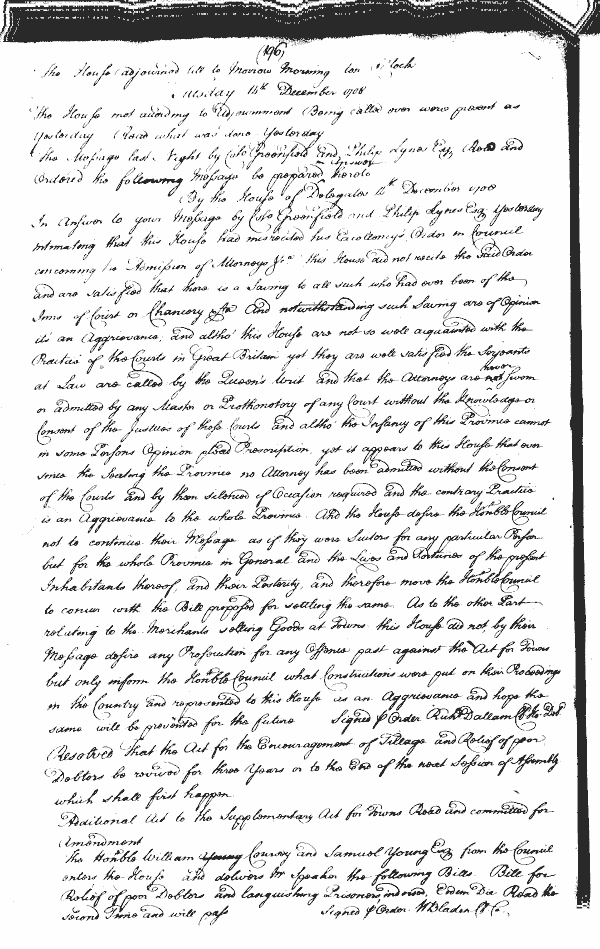 (196)
The House adjourned till to Morrow Morning ten o'Clock
Tuesday 14th December 1708
The House met according to Adjournment Being called over were present as
Yesterday Read what was done Yesterday
The Message last Night by Colo Greenfield and Philip Lynes Esqr Read and
Ordered the following Message be prepared Answer hereto
By the House of Delegates 14th December 1708
In Answer to your Message by Colo Greenfield and Philip Lynes Esqr Yesterday
intimating that this House had misrecited his Excellency's Order in Council
concerning the Admission of Attorneys &ca this House did not recite the said Order
and are satisfied that there is a Saving to all such who had ever been of the
Inns of Court or Chancery &ca And notwithstanding such Saving are of Opinion
its an Aggrievance, and altho' this House are not so well acquainted with the
Practice of the Courts in Great Britain yet they are well satisfied the Serjeants
at Law are called by the Queen's Writ and that the Attorneys are not never sworn
or admitted by any Master or Prothonotary of any Court without the Knowledge or
Consent of the Justices of those Courts and altho' the Infancy of this Province cannot
in some Persons Opinion plead Prescription, yet it appears to this House that ever
since the Seating the Province no Attorney has been admitted without the Consent
of the Courts and by them silenced if Occasion required and the contrary Practice
is an Aggrievance to the whole Province. And the House desire the Honble Council
not to continue their Message as if they were Suitors for any particular Person
but for the whole Province in General and the Lives and Fortunes of the present
Inhabitants thereof, and their Posterity, and therefore move the Honble Council
to concur with the Bill proposed for settling the same. As to the other Part
relating to the Merchants selling Goods at Towns this House did not by their
Message desire any Prosecution for any Offence past against the Act for Towns
but only inform the Honble Council what Constructions were put on their Proceedings
in the Country and represented to this House as an Aggrievance and hope the
same will be prevented for the future Signed p Order Richd Dallam Cl Ho: Del
Resolved that the Act for the Encouragement of Tillage and Relief of poor
Debtors be revived for three Years or to the End of the next Session of Assembly
which shall first happen.
Additional Act to the Supplementary Act for Towns Read and committed for
Amendment
The Honble William Young Coursey and Samuel Young Esqr from the Council
enters the House and delivers Mr Speaker the following Bills. Bill for
Relief of poor Debtors and languishing Prisoners indorsed, Eodem Die Read the
second Time and will pass Signed p Order W Bladen Cl Co.